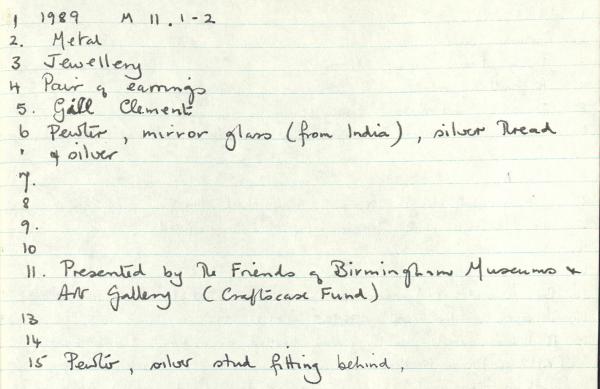 1 1989 M 11.1-2
2. Metal
3 Jewellery
4 Pair of earrings
5. Gill Clement
6 Pewter, mirror glass (from India), silver Thread
& silver
7.
8
9.
10
11. Presented by The Friends of Birmingham Museums &
Art Gallery (Craftscase Fund)
13
14
15 Pewter, silver stud fitting behind,